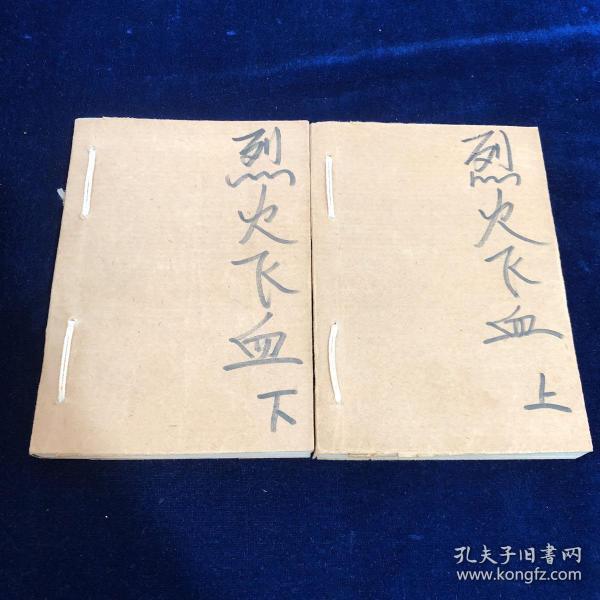 烈火飞血
下
烈火飞血
上
孔夫子旧書网
www.kongfz.com